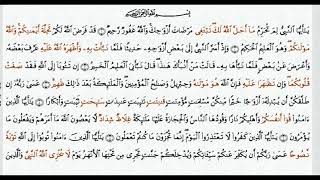 بِسْمِ ٱللَّهِ ٱلرَّحْمَٰنِ ٱلرَّحِيمِ
يَٰٓأَيُّهَا ٱلنَّبِىُّ لِمَ تُحَرِّمُ مَآ أَحَلَّ ٱللَّهُ لَكَ تَبْتَغِى مَرْضَاتَ أَزْوَٰجِكَ وَٱللَّهُ غَفُورٌ رَّحِيمٌ ١ قَدْ فَرَضَ ٱللَّهُ لَكُمْ تَحِلَّةَ أَيْمَٰنِكُمْ وَٱللَّهُ
مَوْلَىٰكُمْ وَهُوَ ٱلْعَلِيمُ ٱلْحَكِيمُ ٢ وَإِذْ أَسَرَّ ٱلنَّبِىُّ إِلَىٰ بَعْضِ أَزْوَٰجِهِۦ حَدِيثًا فَلَمَّا نَبَّأَتْ بِهِۦ وَأَظْهَرَهُ ٱللَّهُ عَلَيْهِ عَرَّفَ بَعْضَهُۥ
وَأَعْرَضَ عَنۢ بَعْضٍ فَلَمَّا نَبَّأَهَا بِهِۦ قَالَتْ مَنْ أَنۢبَأَكَ هَٰذَا قَالَ نَبَّأَنِىَ ٱلْعَلِيمُ ٱلْخَبِيرُ ٣ إِن تَتُوبَآ إِلَى ٱللَّهِ فَقَدْ صَغَتْ
قُلُوبُكُمَا وَإِن تَظَٰهَرَا عَلَيْهِ فَإِنَّ ٱللَّهَ هُوَ مَوْلَىٰهُ وَجِبْرِيلُ وَصَٰلِحُ ٱلْمُؤْمِنِينَ وَٱلْمَلَٰٓئِكَةُ بَعْدَ ذَٰلِكَ ظَهِيرٌ ٤ عَسَىٰ رَبُّهُۥٓ إِن
طَلَّقَكُنَّ أَن يُبْدِلَهُۥٓ أَزْوَٰجًا خَيْرًا مِّنكُنَّ مُسْلِمَٰتٍ مُّؤْمِنَٰتٍ قَٰنِتَٰتٍ تَٰٓئِبَٰتٍ عَٰبِدَٰتٍ سَٰٓئِحَٰتٍ ثَيِّبَٰتٍ وَأَبْكَارًا ٥ يَٰٓأَيُّهَا ٱلَّذِينَ ءَامَنُوا۟
قُوٓا۟ أَنفُسَكُمْ وَأَهْلِيكُمْ نَارًا وَقُودُهَا ٱلنَّاسُ وَٱلْحِجَارَةُ عَلَيْهَا مَلَٰٓئِكَةٌ غِلَاظٌ شِدَادٌ لَّا يَعْصُونَ ٱللَّهَ مَآ أَمَرَهُمْ
وَيَفْعَلُونَ مَا يُؤْمَرُونَ ٦ يَٰٓأَيُّهَا ٱلَّذِينَ كَفَرُوا۟ لَا تَعْتَذِرُوا۟ ٱلْيَوْمَ إِنَّمَا تُجْزَوْنَ مَا كُنتُمْ تَعْمَلُونَ ٧ يَٰٓأَيُّهَا ٱلَّذِينَ ءَامَنُوا۟ تُوبُوٓا۟ إِلَى ٱللَّهِ تَوْبَةً
نَّصُوحًا عَسَىٰ رَبُّكُمْ أَن يُكَفِّرَ عَنكُمْ سَيِّـَٔاتِكُمْ وَيُدْخِلَكُمْ جَنَّٰتٍ تَجْرِى مِن تَحْتِهَا ٱلْأَنْهَٰرُ يَوْمَ لَا يُخْزِى ٱللَّهُ ٱلنَّبِىَّ وَٱلَّذِينَ